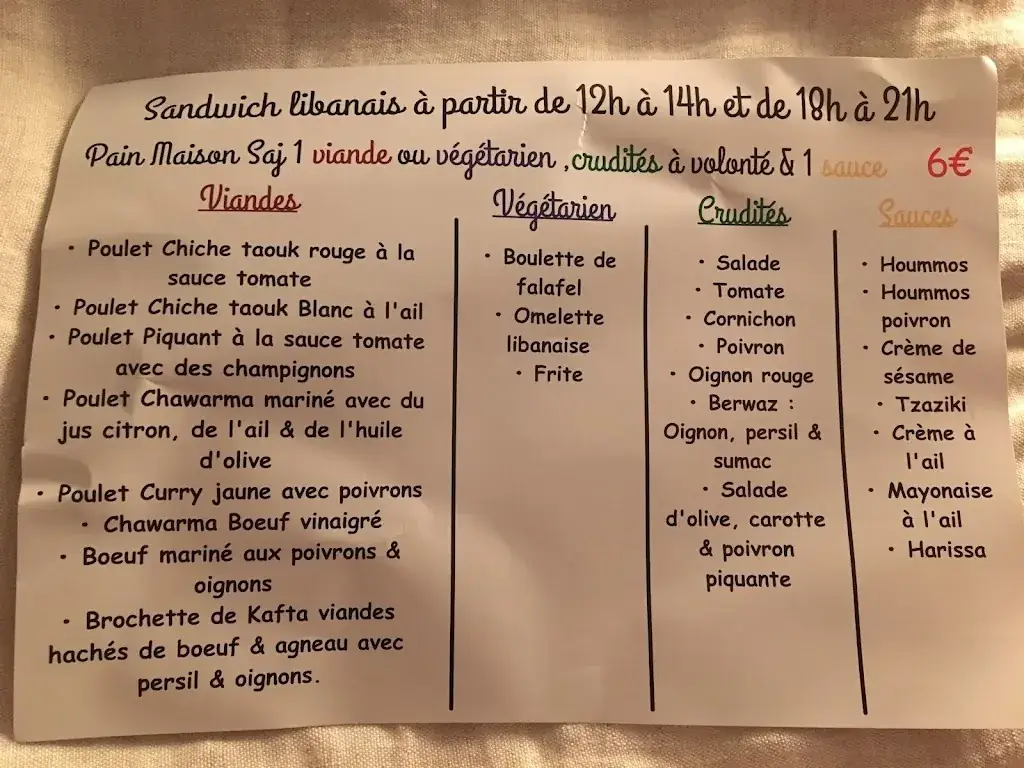 Sandwich libanais à partir de 12h à 14h et de 18h à 21h
Pain Maison Saj 1 viande ou végétarien ,crudités à volonté & 1 sauce 6€
Viandes
· Poulet Chiche taouk rouge à la
sauce tomate
· Poulet Chiche taouk Blanc à l'ail
· Poulet Piquant à la sauce tomate
avec des champignons
· Poulet Chawarma mariné avec du
jus citron, de l'ail & de l'huile
d'olive
· Poulet Curry jaune avec poivrons
· Chawarma Boeuf vinaigré
· Boeuf mariné aux poivrons &
oignons
· Brochette de Kafta viandes
hachés de boeuf & agneau avec
persil & oignons.
Végétarien
· Boulette de
falafel
· Omelette
libanaise
· Frite
Crudités
· Salade
· Tomate
· Cornichon
· Poivron
· Oignon rouge
· Berwaz :
Oignon, persil &
sumac
· Salade
d'olive, carotte
& poivron
piquante
Sauces
· Hoummos
· Hoummos
poivron
· Crème de
sésame
· Tzaziki
· Crème à
l'ail
· Mayonaise
à l'ail
· Harissa